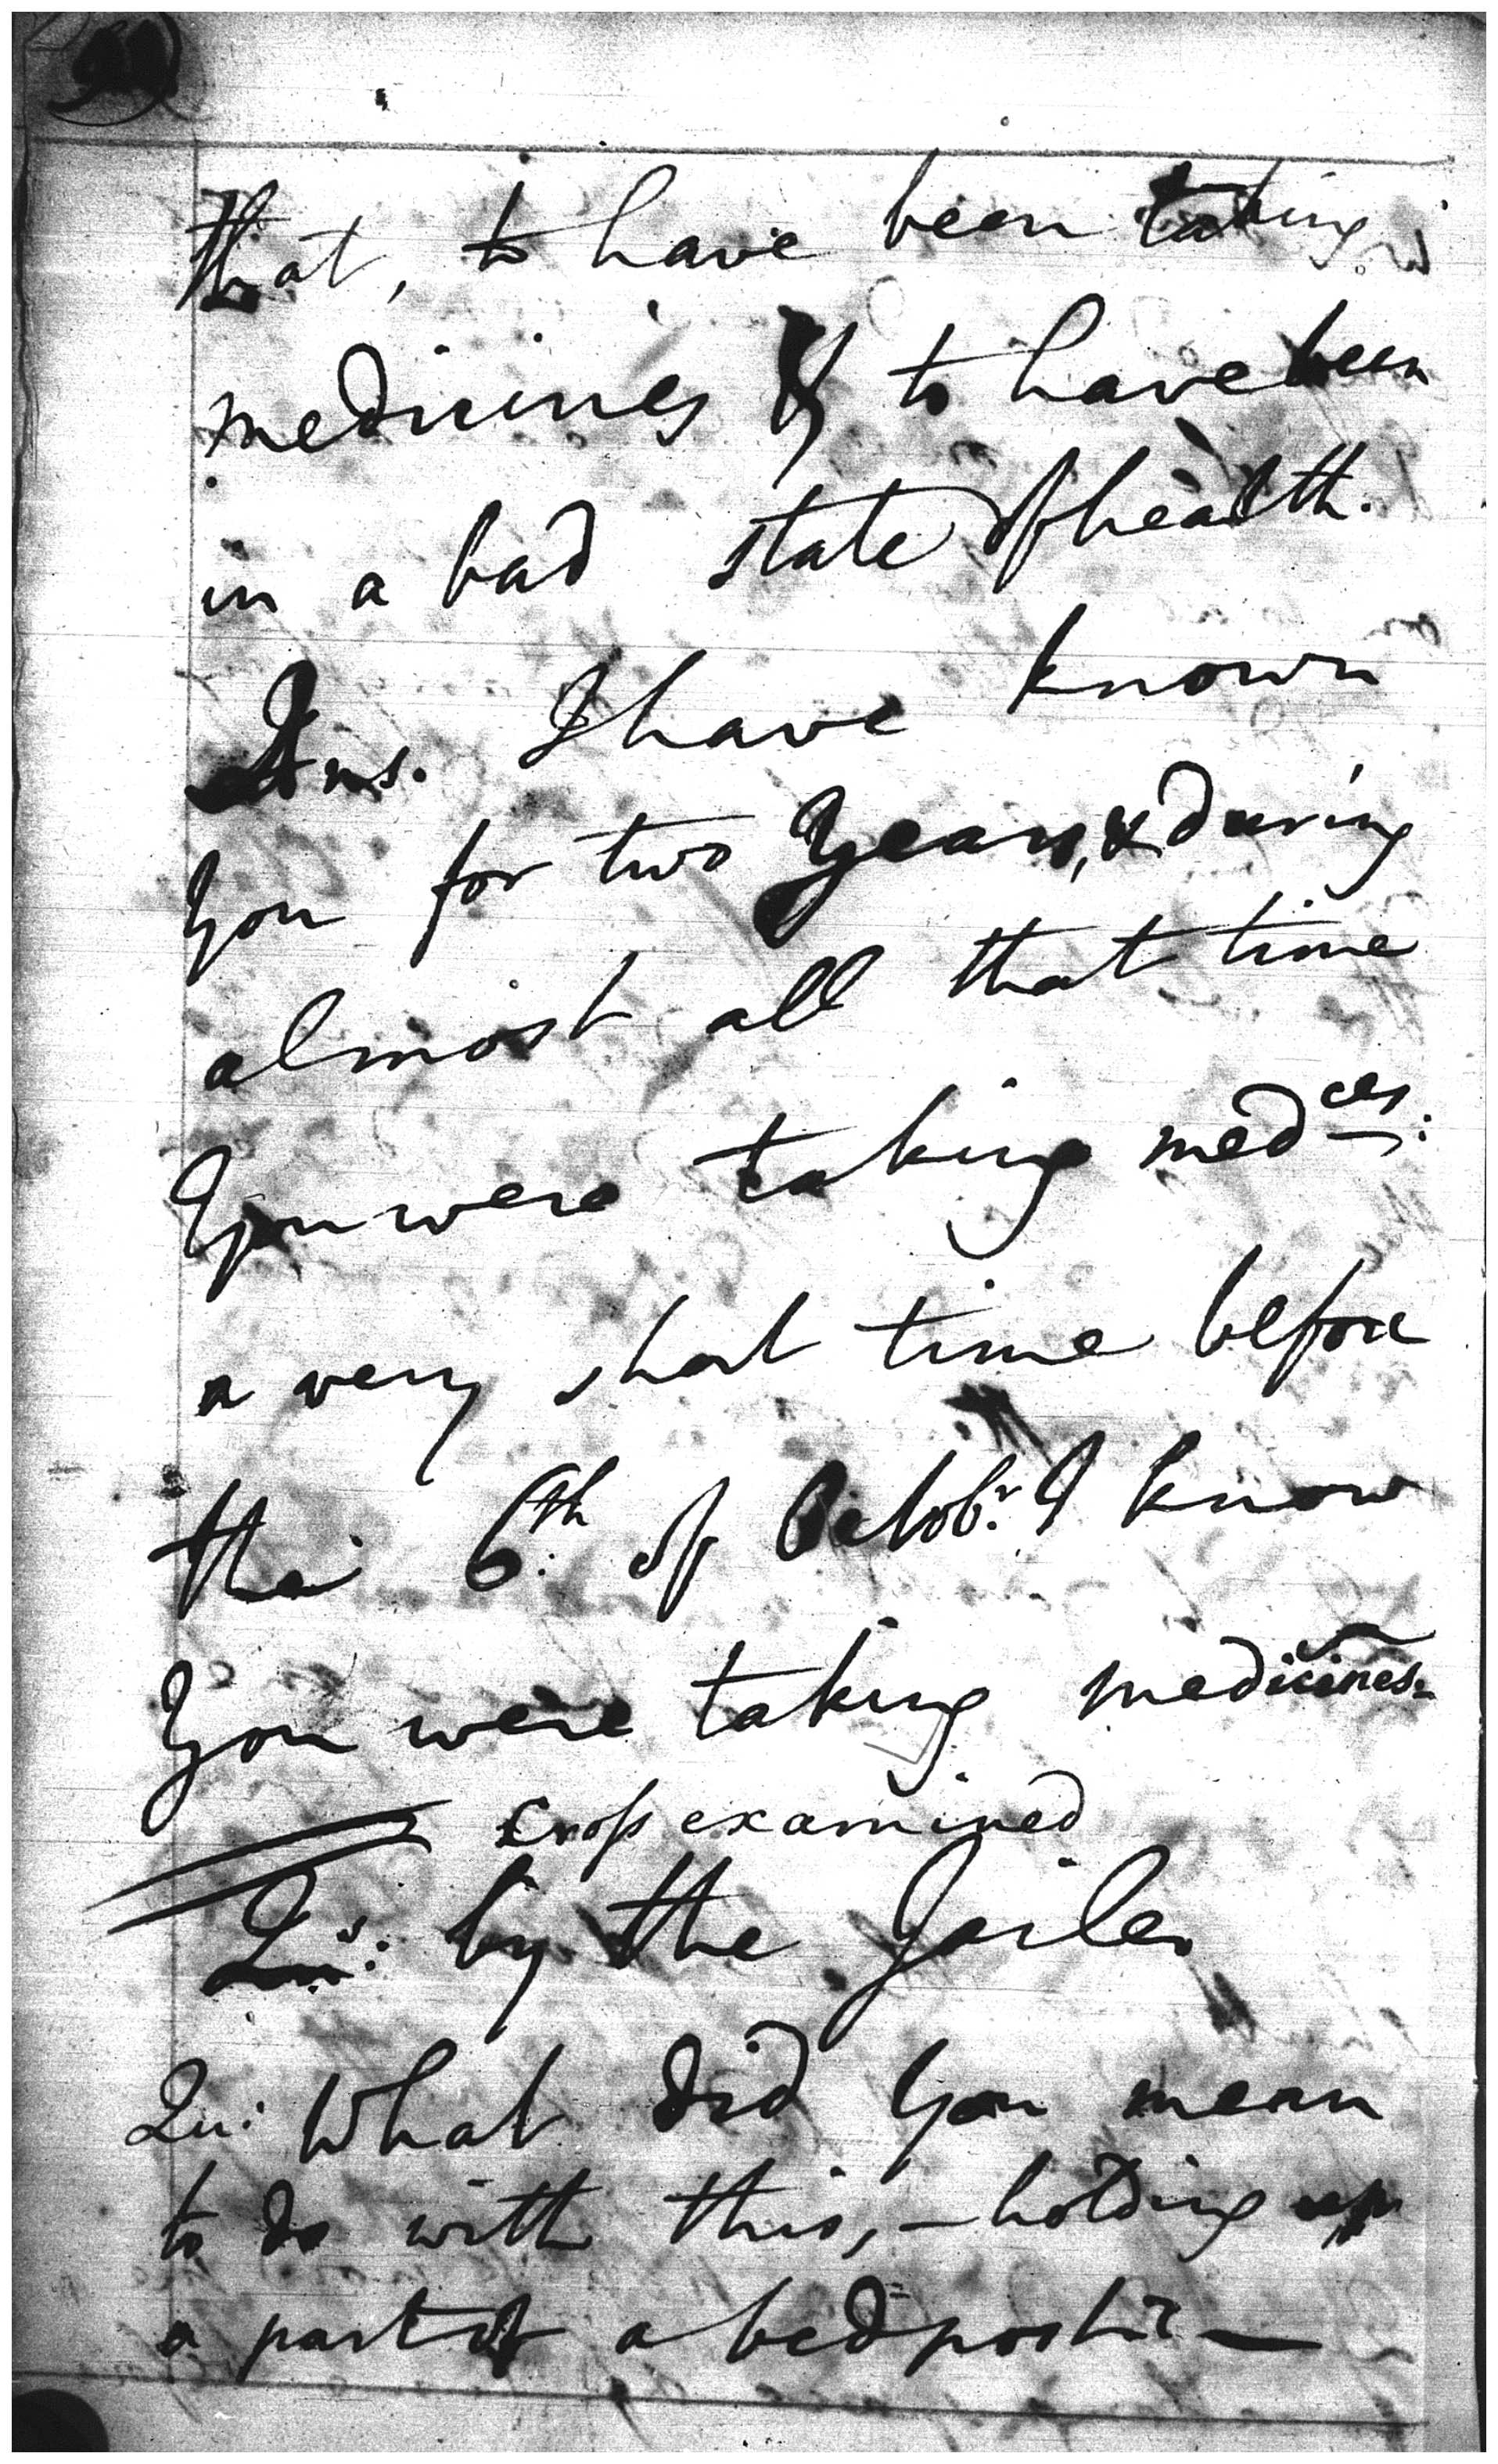 that, to have been taking
medicines & to have been
in a bad state of health.
Ans. I have known
you for two Years, & during
almost all that time
You were taking med<sup>ces</sup>:
a very short time before
the 6<sup>th</sup>: of Octob<sup>r</sup>: I know
You were taking medicines.
Cross examined
Qu<sup>s</sup>: by the Goiler
Qu: What did You mean
to do with this, – holding up
a part of a bedpost? –